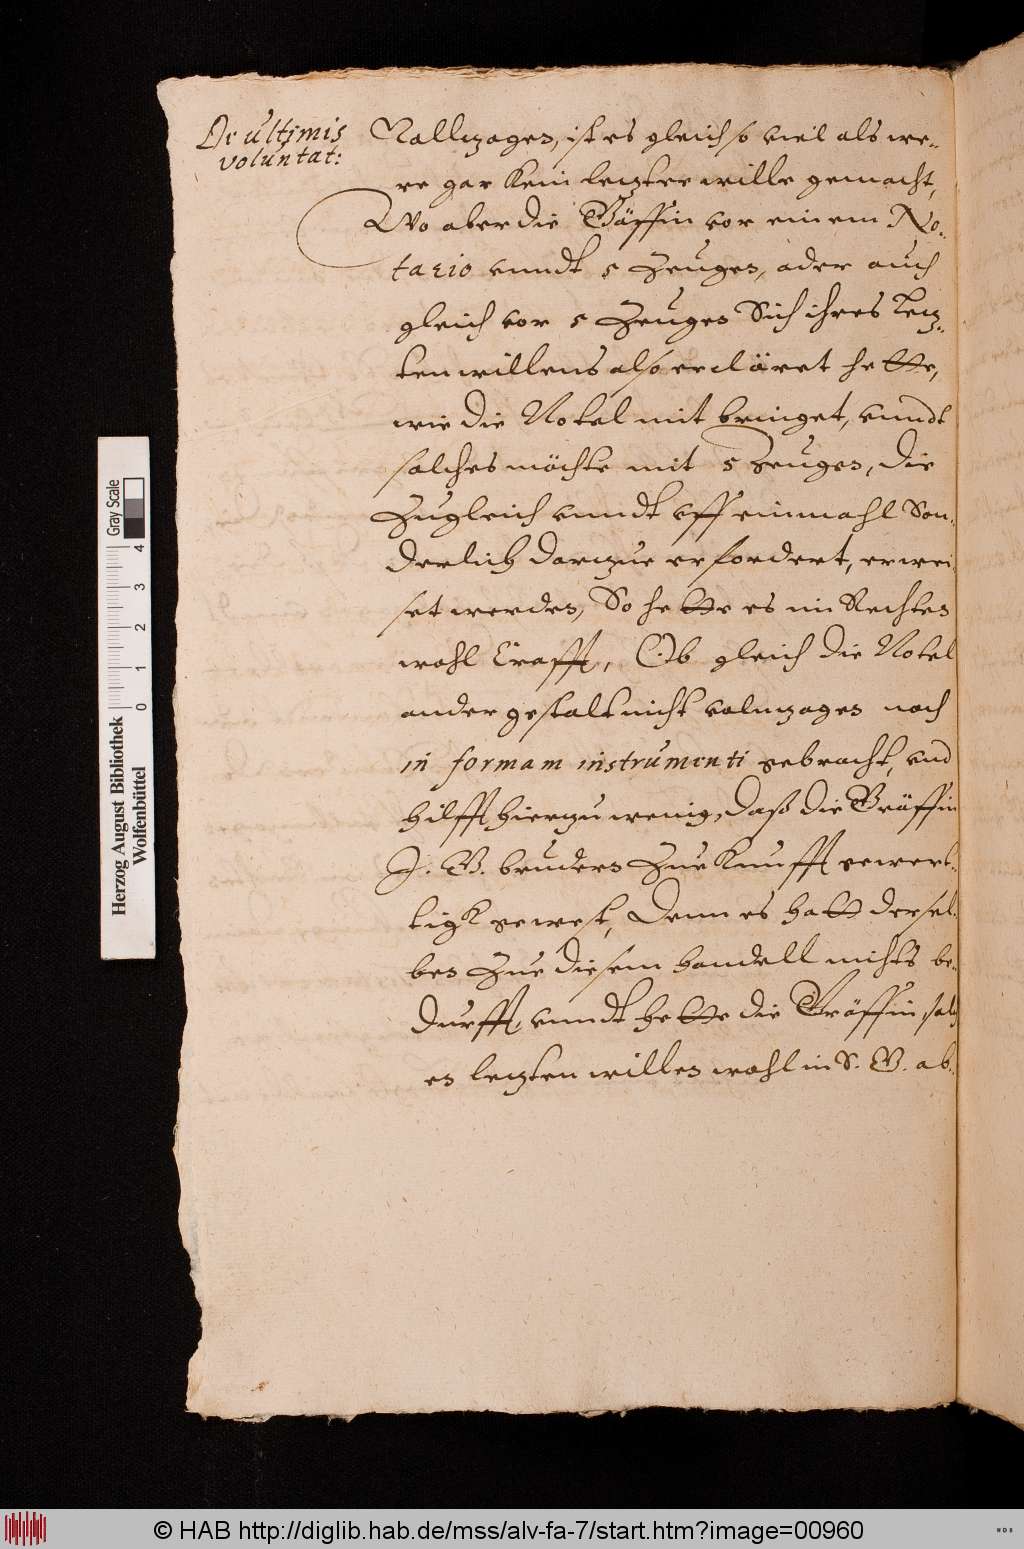 De ultimis
voluntat:
Vollnzogen, ist es gleich so viel als we-
re gar kein letzter wille gemacht,
Wo aber die Gräffin vor einem No-
tario vnndt 5 Zeugen, oder auch
gleich vor 5 Zeugen Sich ihres letz-
ten willens also ercläret hette,
wie die Notel mit bringet, vnndt
solches möchte mit 5 Zeugen, die
Zugleich vnndt vff einmahl Son-
derlich darzue erfordert, erwei-
set werden, So hette es im Rechten
wohl Crafft, Ob gleich die Notel
ander gestalt nicht volnzogen noch
in formam instrumenti gebracht, vnd
hilfft hierzu wenig, daß die Gräffin
J. G. bruders Zue Kunfft gewert-
tigk gewest, Denn es hatt dersel-
ben Zue diesem handell nichts be-
durfft, vnndt hette die Gräffin solch
en letzten willen wohl in S. G. ab-
Herzog August Bibliothek
Wolfenbüttel
0 1 2 3 4
Gray Scale
© HAB http://diglib.hab.de/mss/alv-fa-7/start.htm?image=00960